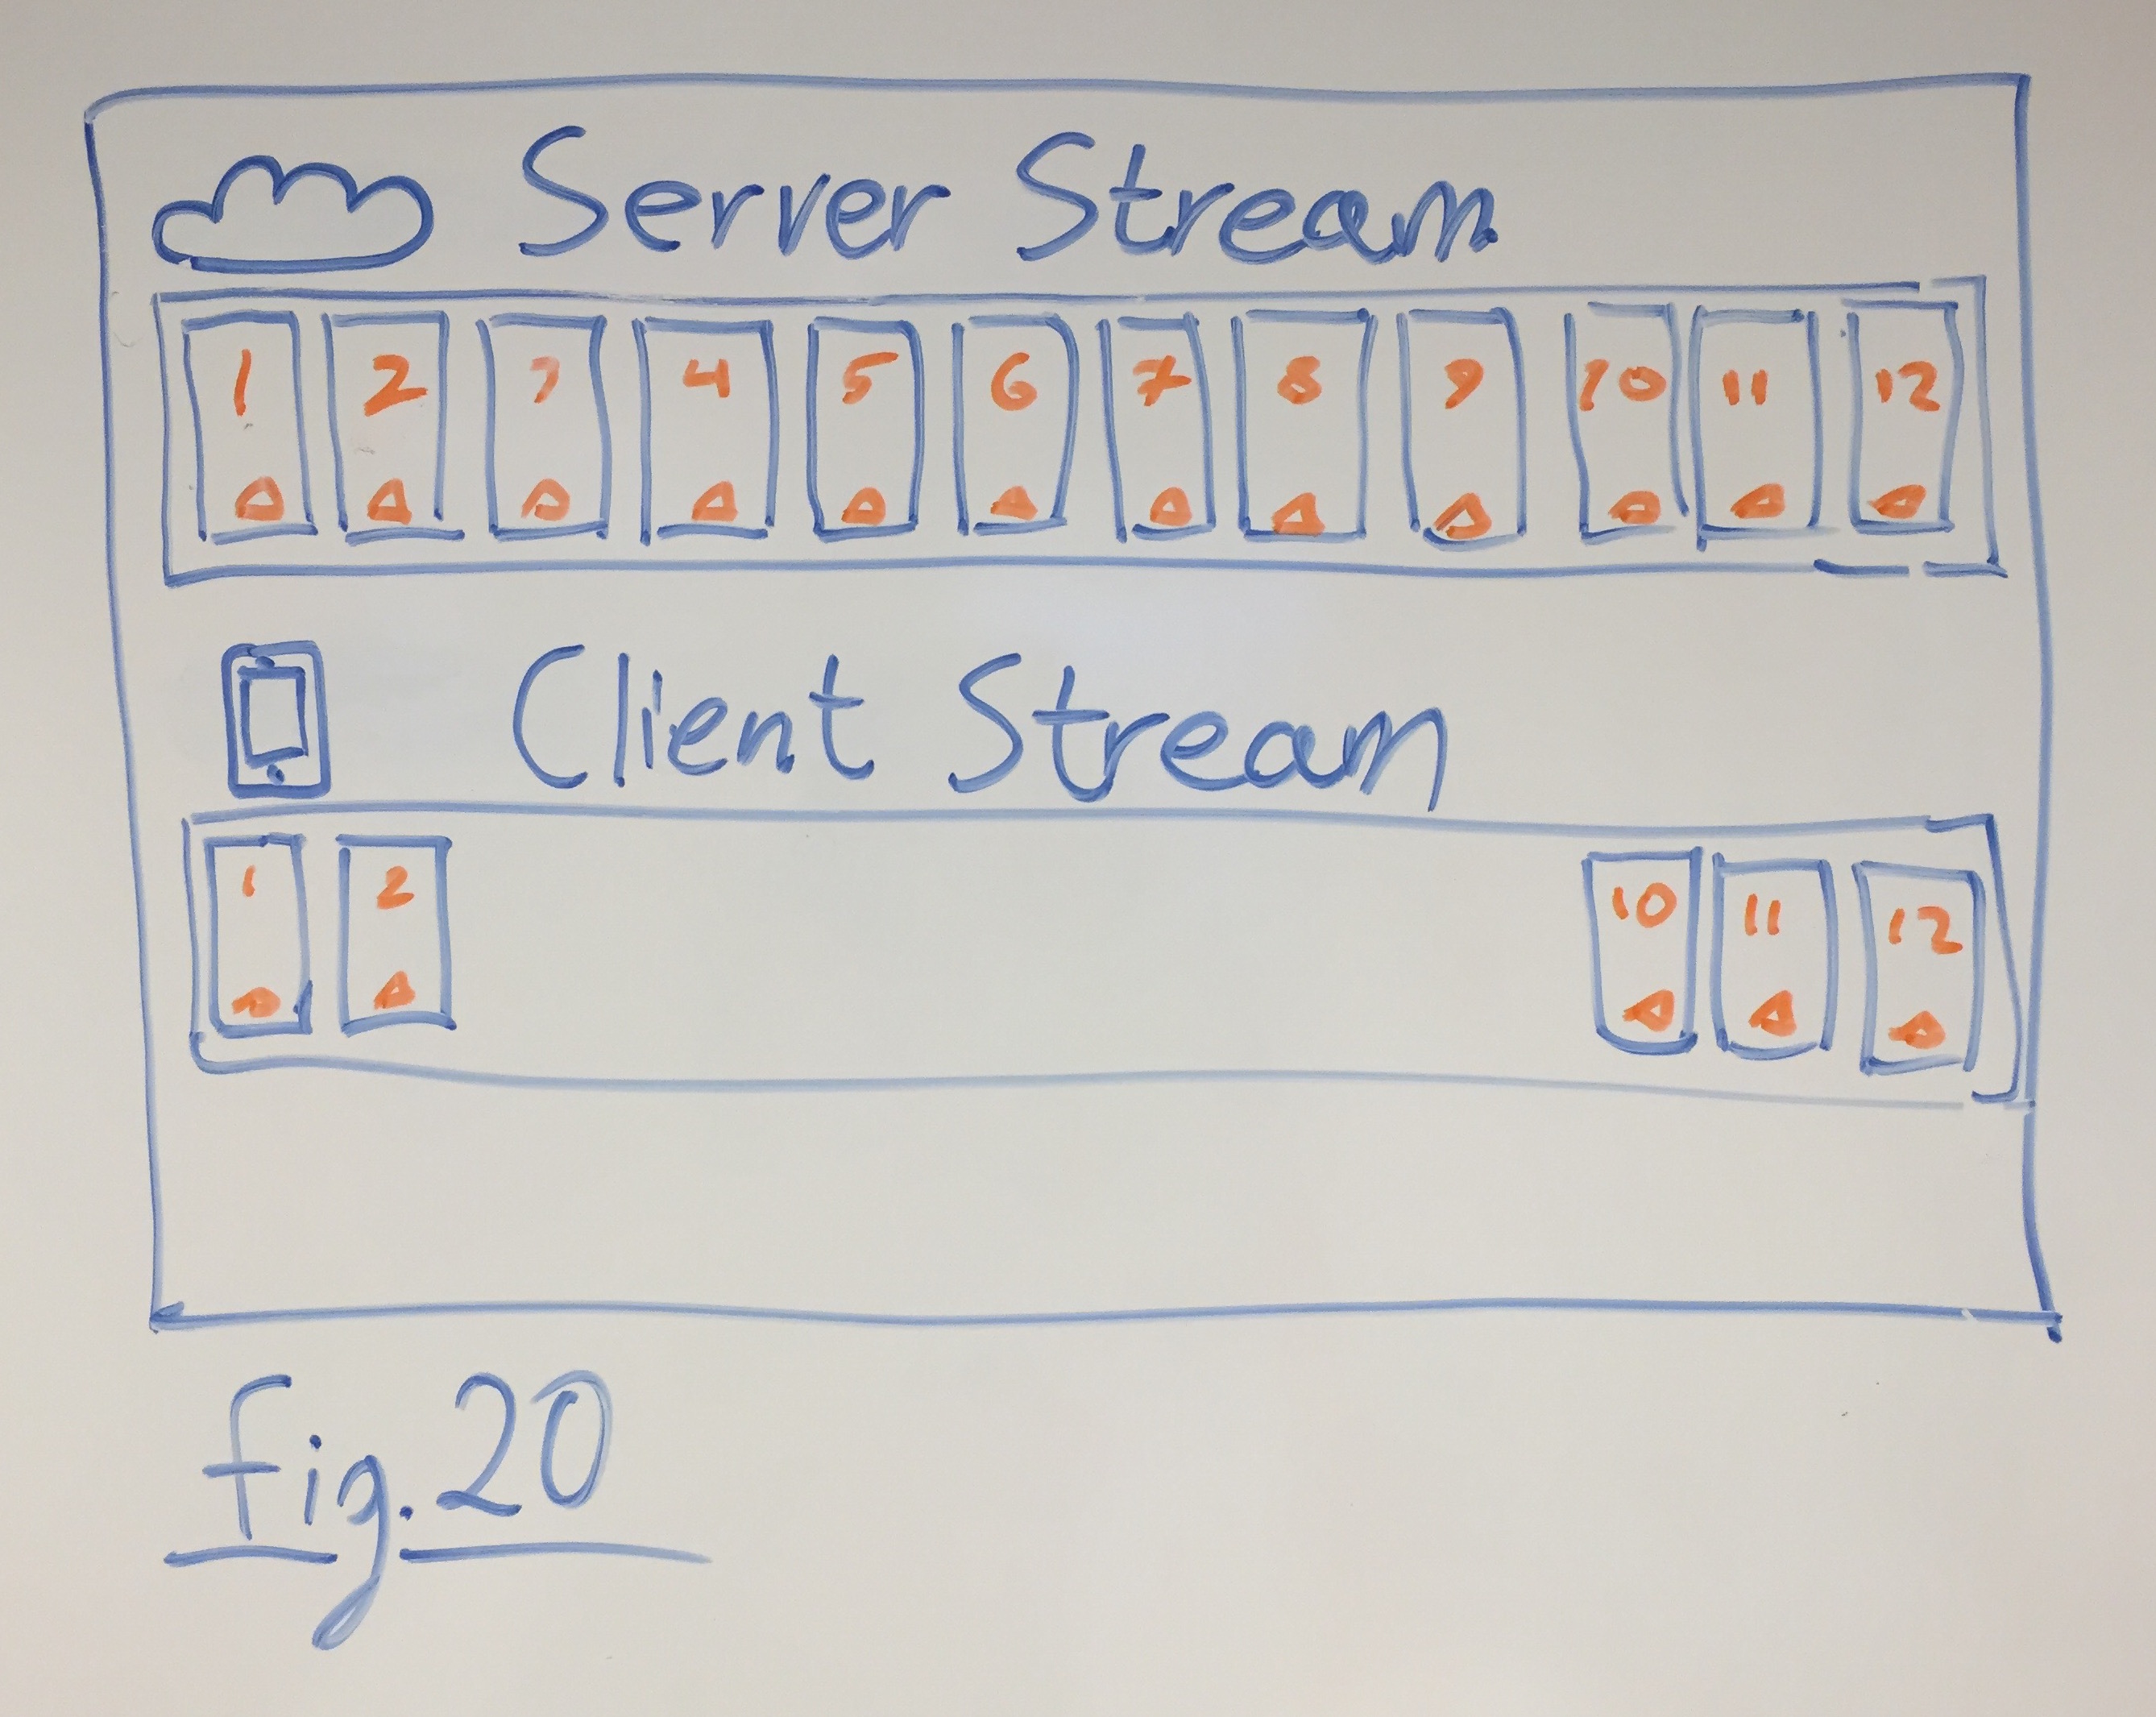 Server Stream
1 2 3 4 5 6 7 8 9 10 11 12
Client Stream
1 2 10 11 12
fig. 20